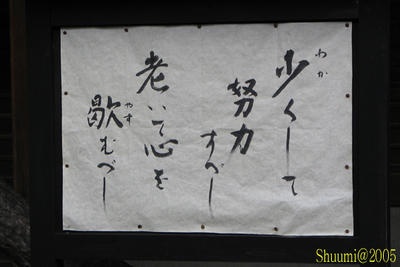 少くして
努力
すべし
老いて心を
歇むべし
わか
やす
Shuumi@2005